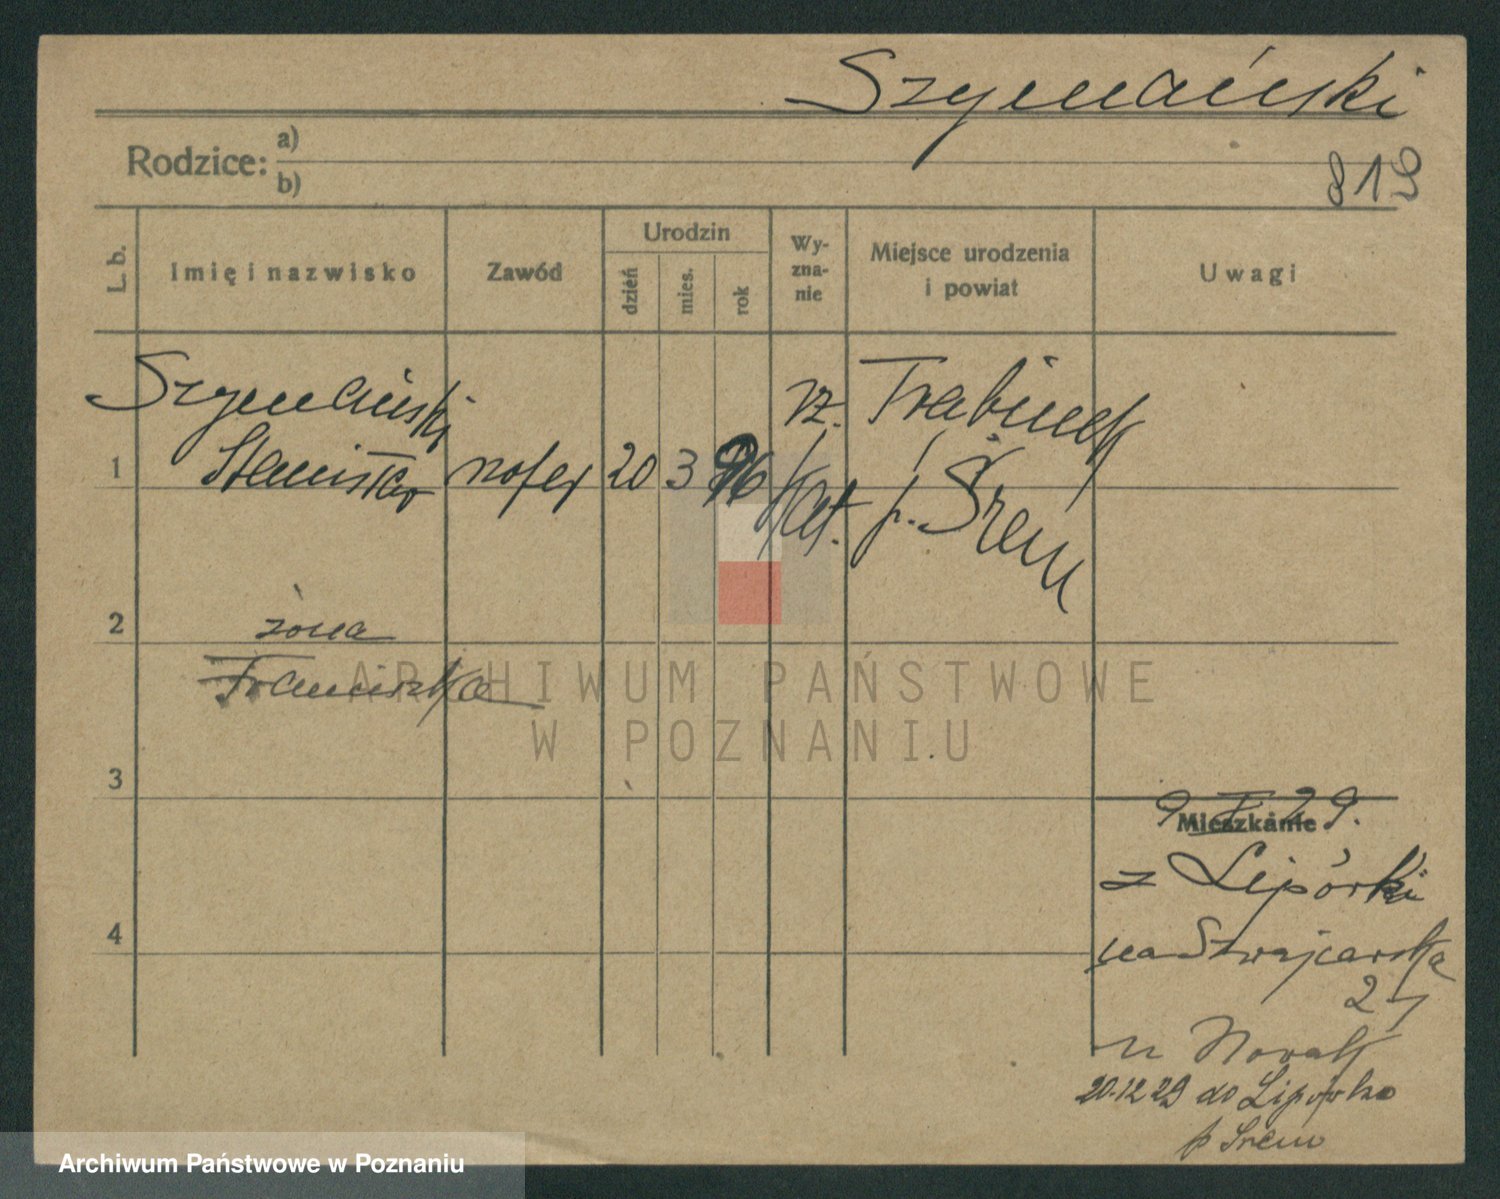 Szymański
Rodzice: a)
b)
819
L. b.
Imię i nazwisko
Zawód
Urodzin
dzień
mies.
rok
Wy-
zna-
nie
Miejsce urodzenia
i powiat
Uwagi
Szymański
1 Stanisław szofer 20 3 96
rz. kat.
p. Śrem
2 żona
Franciszka
3
4
9 X 29.
Mieszkanie
z Lipówki
na Szwajcarska
u Nowak
20.12 29 do Lipówka
p Śrem
ARCHIWUM PAŃSTWOWE
W POZNANIU
Archiwum Państwowe w Poznaniu